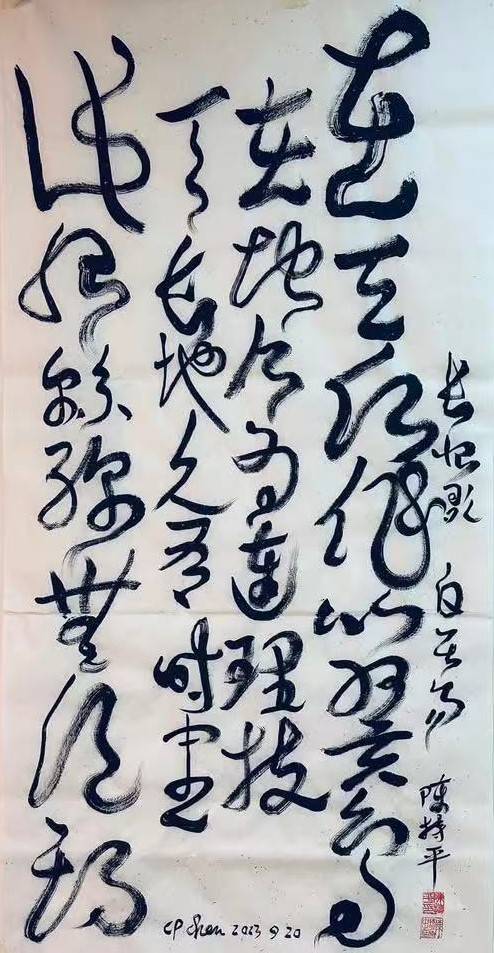 长恨歌 白居易 陈持平
在天愿作比翼鸟
在地愿为连理枝
天长地久有时尽
此恨绵绵無绝期
CP Chen 2023 9 20